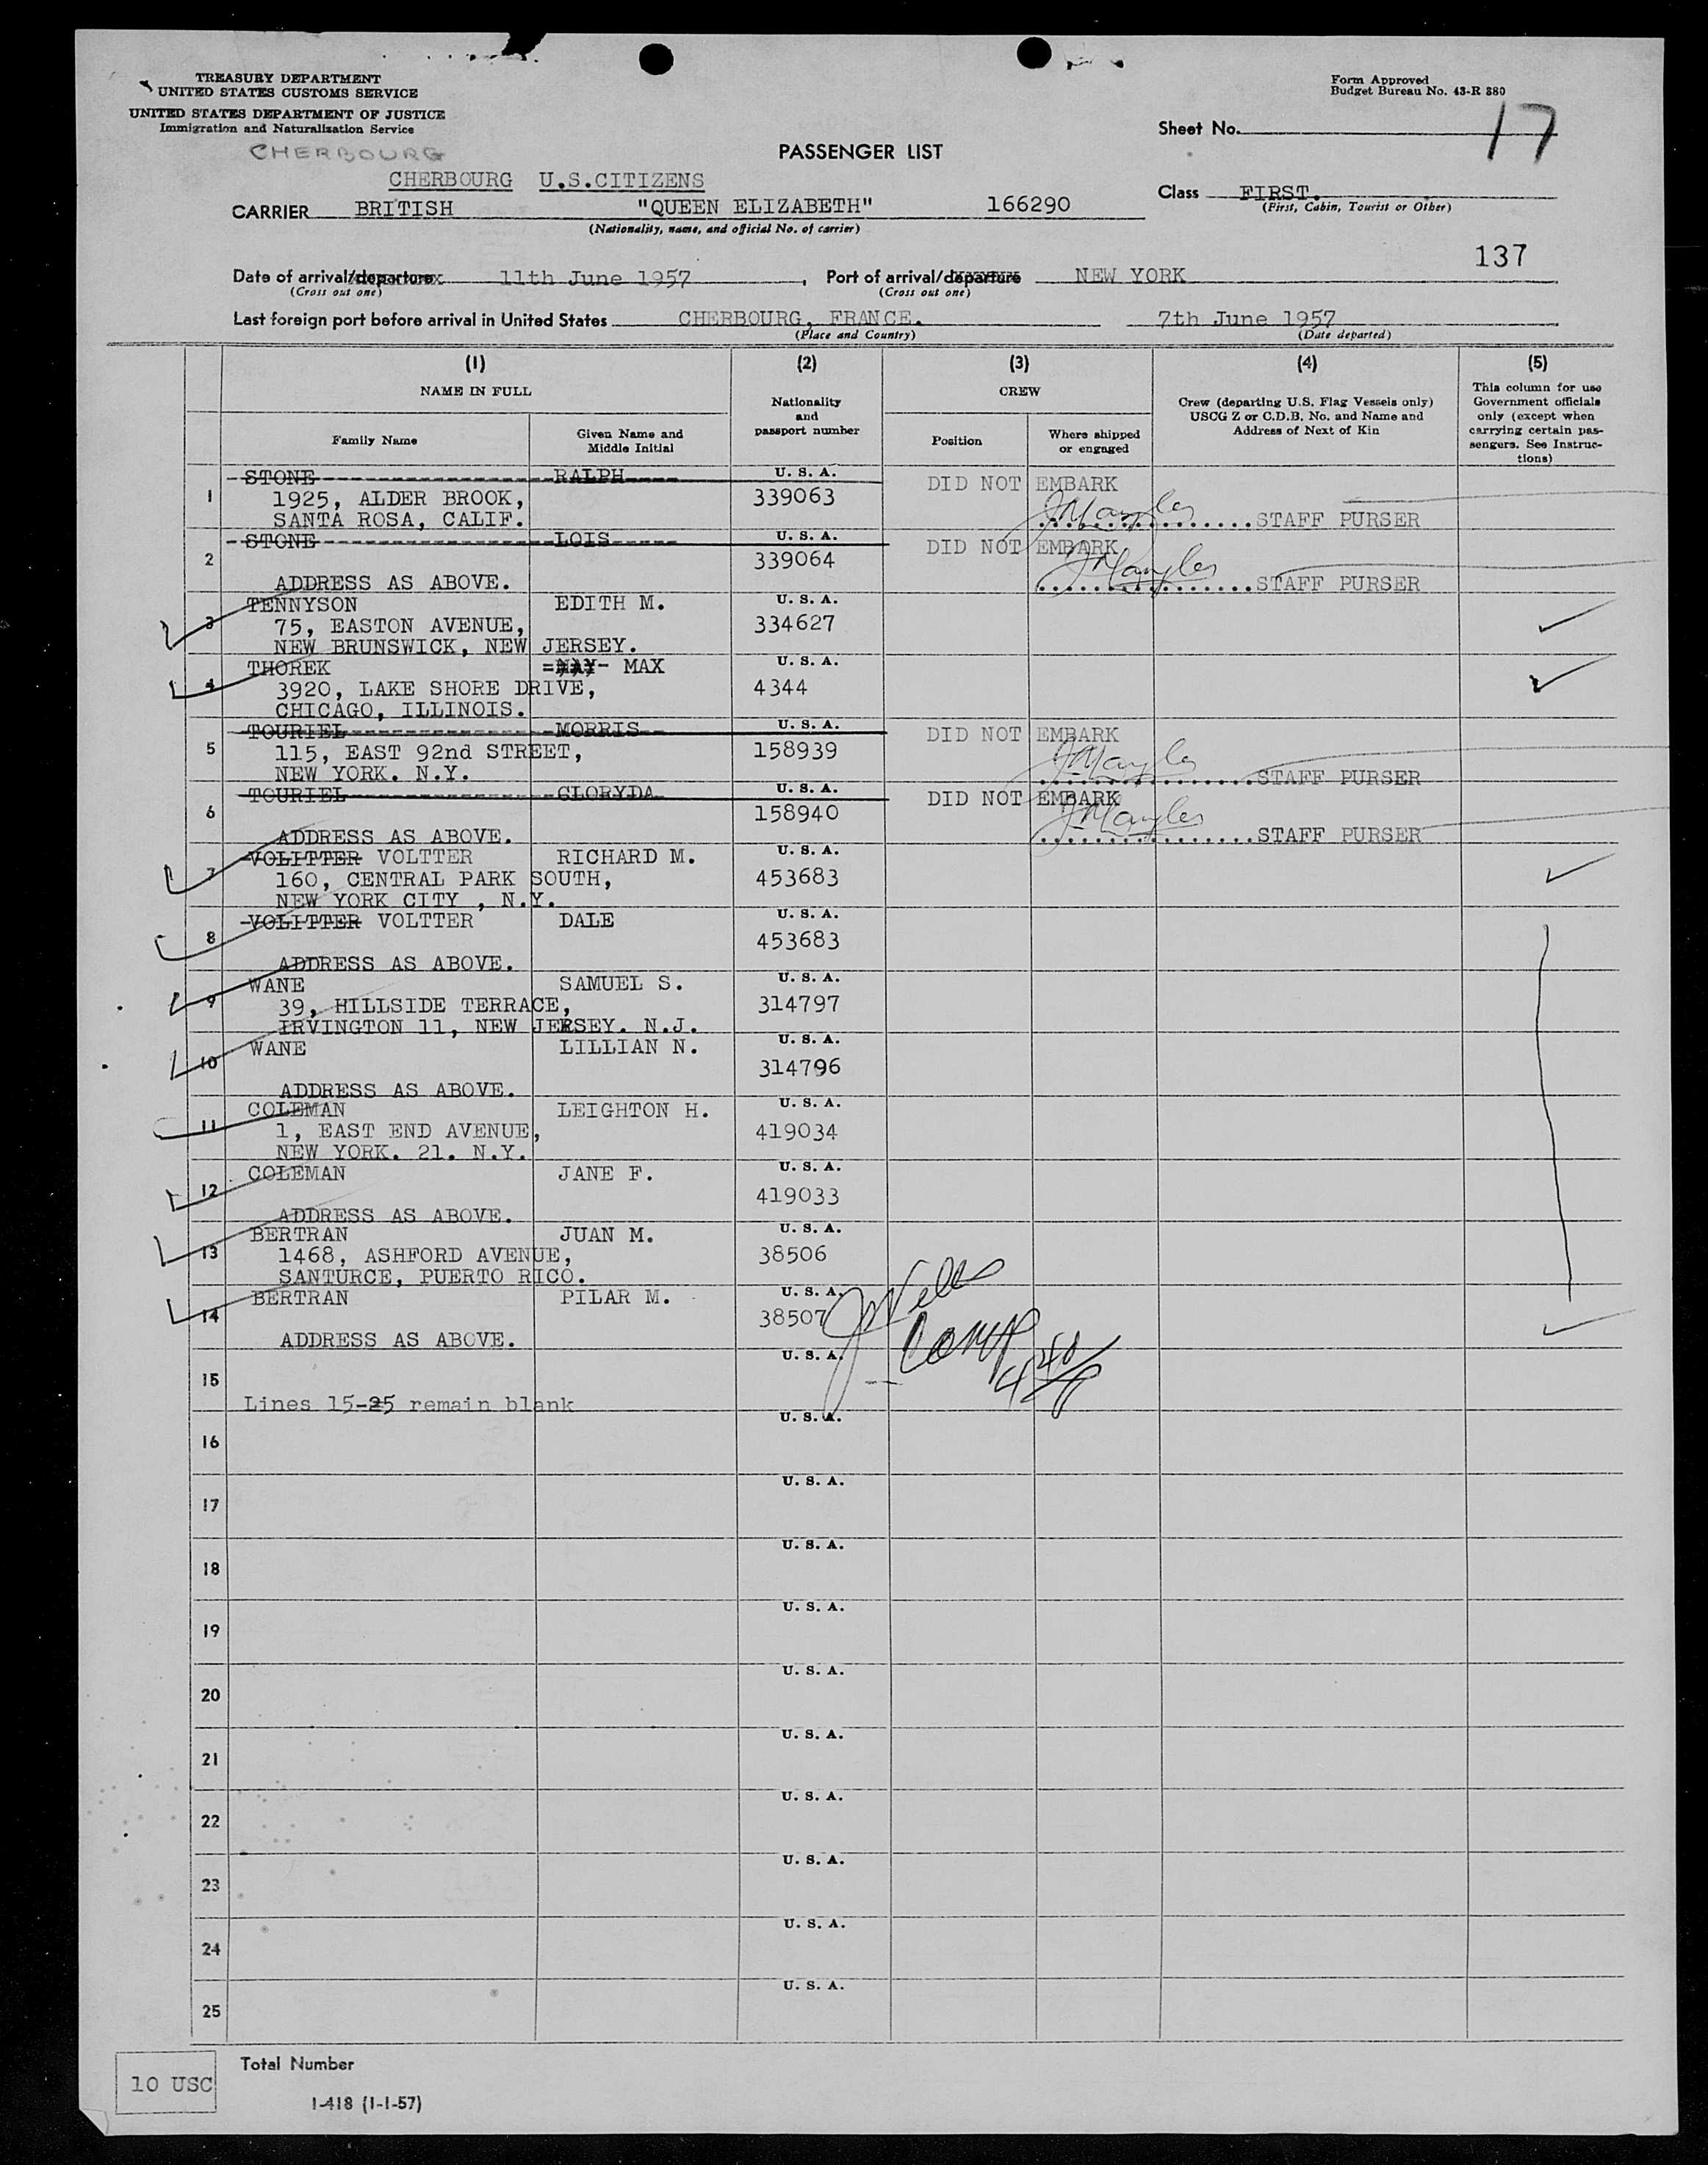 TREASURY DEPARTMENT
UNITED STATES CUSTOMS SERVICE
UNITED STATES DEPARTMENT OF JUSTICE
Immigration and Naturalization Service
Form Approved
Budget Bureau No. 43-R 380
Sheet No. 17
CHERBOURG
PASSENGER LIST
CHERBOURG U.S.CITIZENS
Class FIRST.
(First, Cabin, Tourist or Other)
CARRIER BRITISH "QUEEN ELIZABETH" 166290
(Nationality, name, and official No. of carrier)
137
Date of arrival/departure 11th June 1957, Port of arrival/departure NEW YORK
(Cross out one) (Cross out one)
Last foreign port before arrival in United States CHERBOURG, FRANCE. 7th June 1957
(Place and Country) (Date departed)
(1) (2) (3) (4) (5)
NAME IN FULL
Family Name
Given Name and Middle Initial
Nationality and passport number
CREW
Position
Where shipped or engaged
Crew (departing U.S. Flag Vessels only)
USCG Z or C.D.B. No. and Name and
Address of Next of Kin
This column for use
Government officials
only (except when
carrying certain pas-
sengers. See Instruc-
tions)
STONE RALPH U. S. A.
1 1925, ALDER BROOK, 339063 DID NOT EMBARK
SANTA ROSA, CALIF. J Mangles STAFF PURSER
STONE LOIS U. S. A.
2 339064 DID NOT EMBARK
ADDRESS AS ABOVE. J Mangles STAFF PURSER
TENNYSON EDITH M. U. S. A.
3 75, EASTON AVENUE, 334627
NEW BRUNSWICK, NEW JERSEY.
THOREK =MAY- MAX U. S. A.
4 3920, LAKE SHORE DRIVE, 4344
CHICAGO, ILLINOIS.
TOURIEL MORRIS U. S. A.
5 115, EAST 92nd STREET, 158939 DID NOT EMBARK
NEW YORK. N.Y. J Mangles STAFF PURSER
TOURIEL GLORYDA U. S. A.
6 158940 DID NOT EMBARK
ADDRESS AS ABOVE. J Mangles STAFF PURSER
VOLITTER VOLTTER RICHARD M. U. S. A.
7 160, CENTRAL PARK SOUTH, 453683
NEW YORK CITY , N.Y.
VOLITTER VOLTTER DALE U. S. A.
8 453683
ADDRESS AS ABOVE.
WANE SAMUEL S. U. S. A.
9 39, HILLSIDE TERRACE, 314797
IRVINGTON 11, NEW JERSEY. N.J.
WANE LILLIAN N. U. S. A.
10 314796
ADDRESS AS ABOVE.
COLEMAN LEIGHTON H. U. S. A.
11 1, EAST END AVENUE, 419034
NEW YORK. 21. N.Y.
COLEMAN JANE F. U. S. A.
12 419033
ADDRESS AS ABOVE.
BERTRAN JUAN M. U. S. A.
13 1468, ASHFORD AVENUE, 38506
SANTURCE, PUERTO RICO.
BERTRAN PILAR M. U. S. A.
14 38507
ADDRESS AS ABOVE.
U. S. A.
15
Lines 15-25 remain blank
U. S. A.
16
U. S. A.
17
U. S. A.
18
U. S. A.
19
U. S. A.
20
U. S. A.
21
U. S. A.
22
U. S. A.
23
U. S. A.
24
U. S. A.
25
10 USC
Total Number
I-418 (1-1-57)